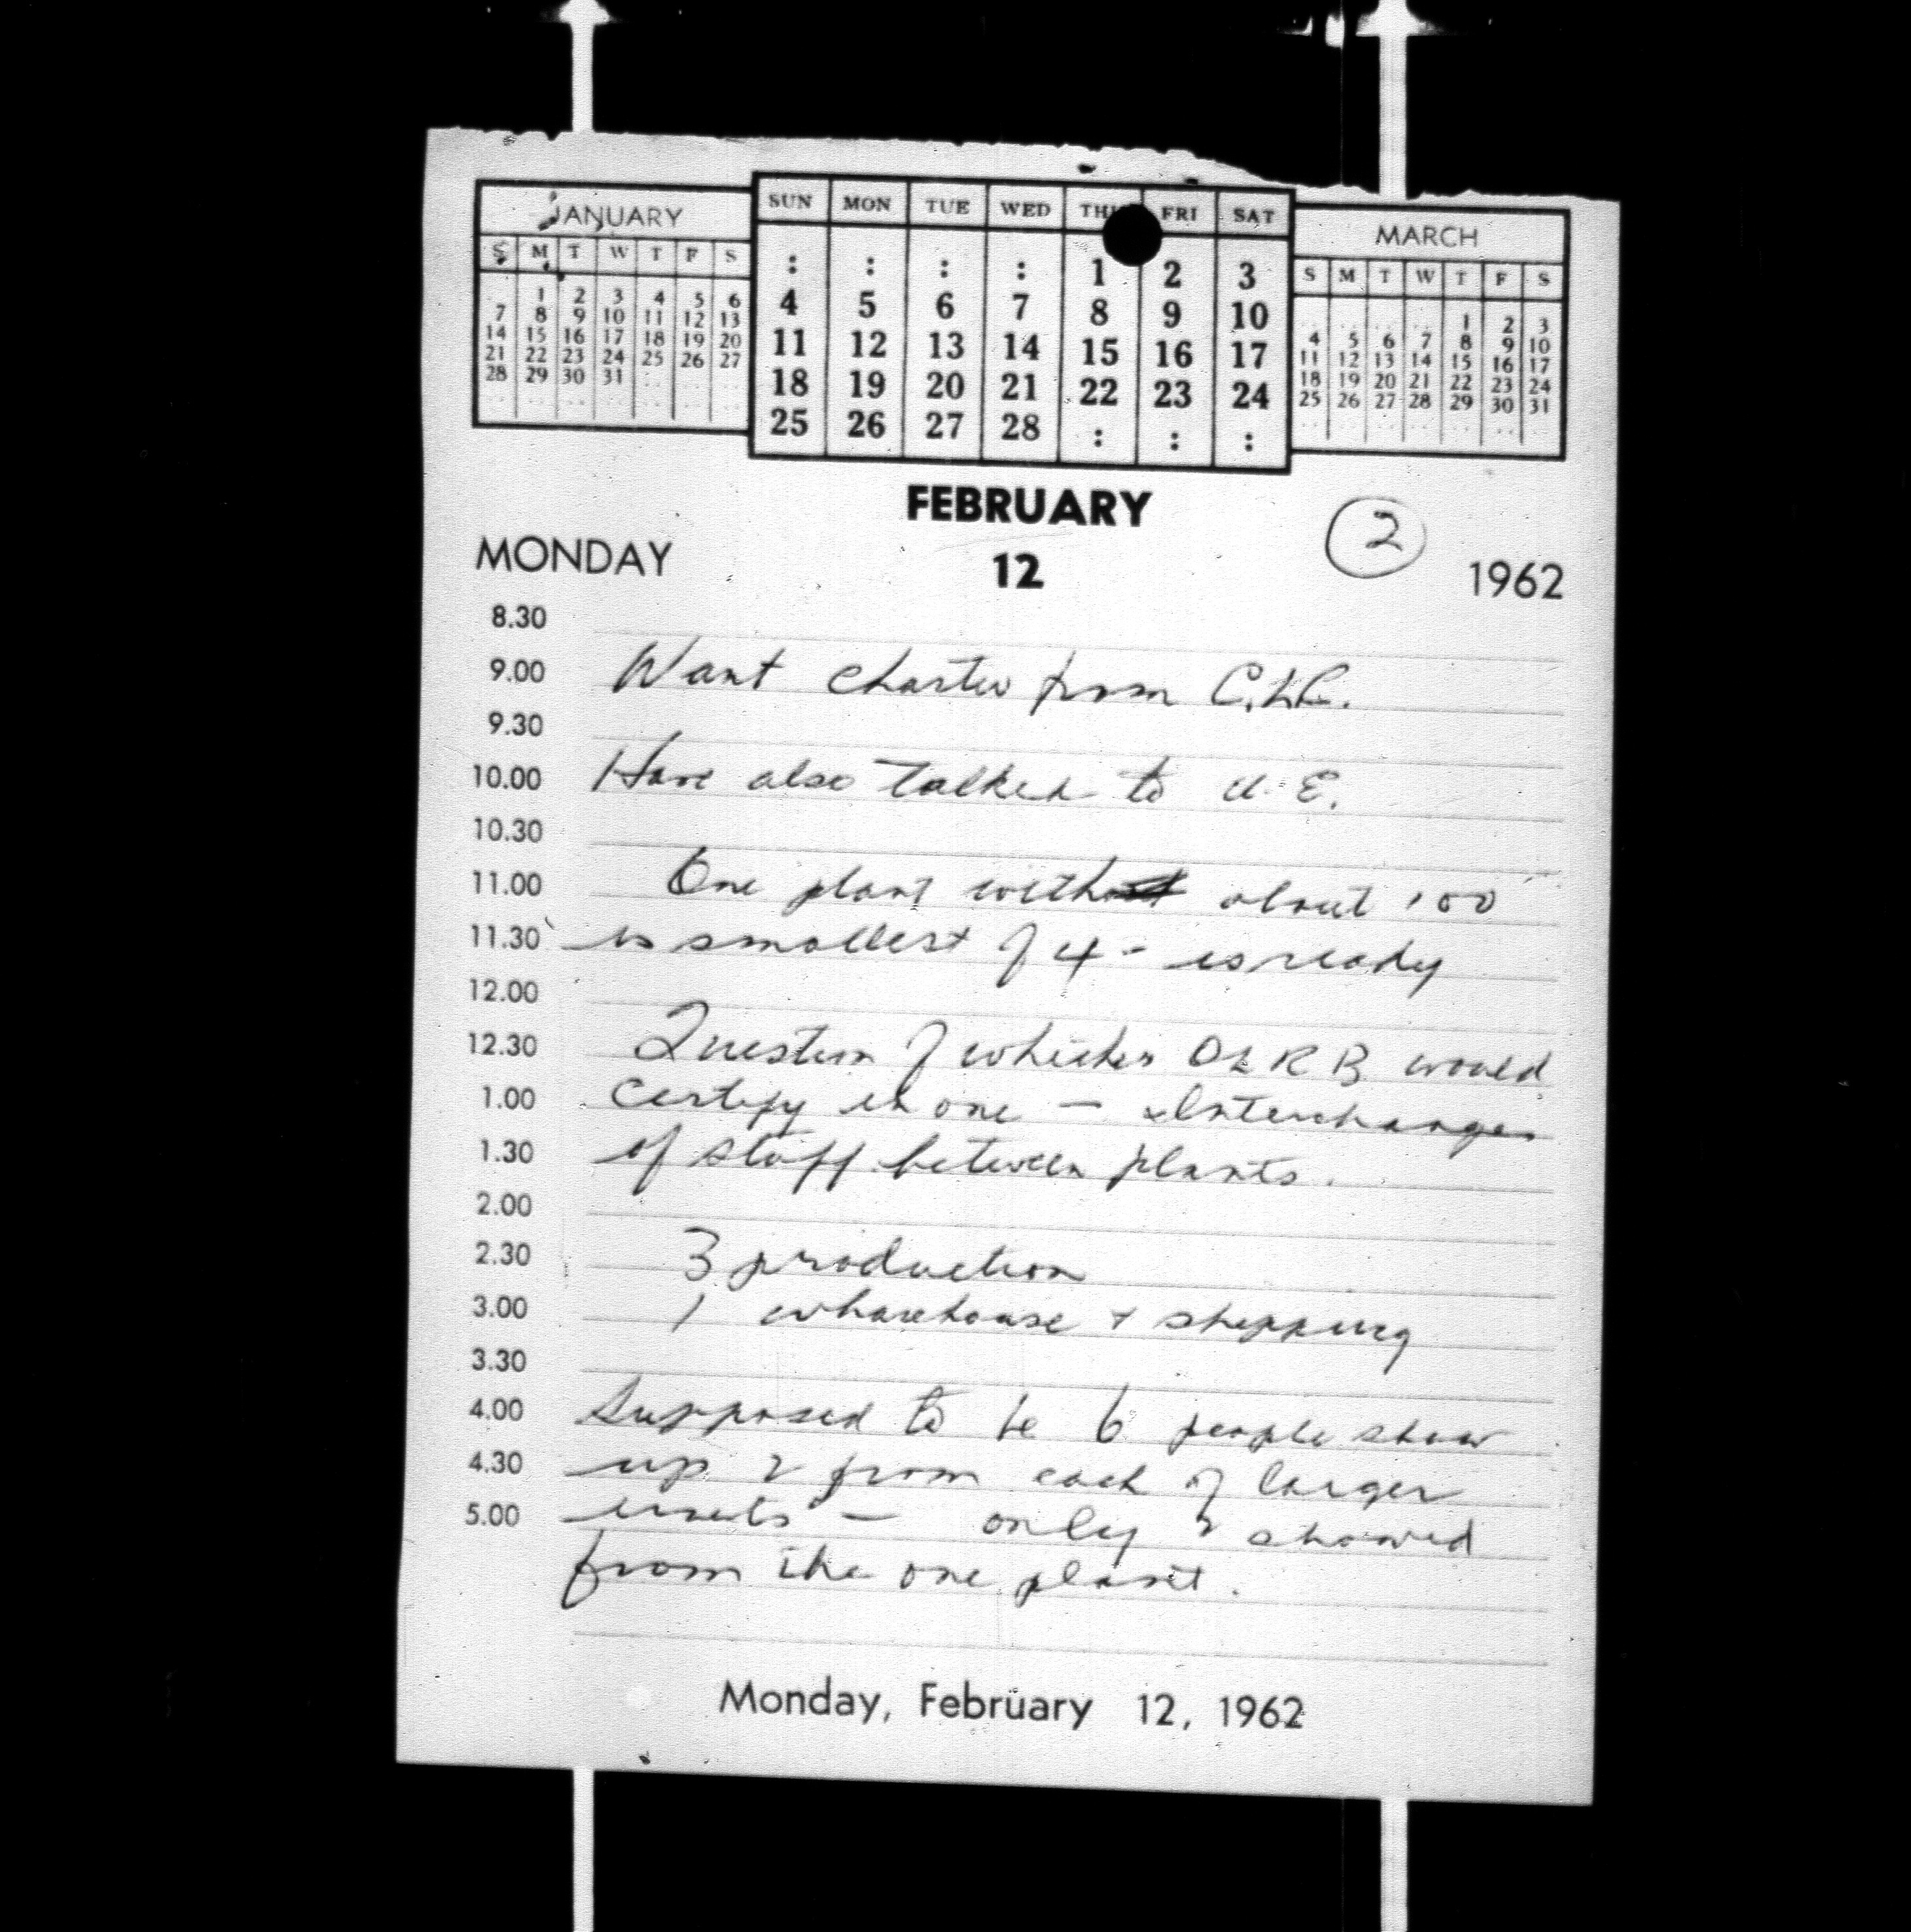 JANUARY
S M T W T F S
1 2 3 4 5 6
7 8 9 10 11 12 13
14 15 16 17 18 19 20
21 22 23 24 25 26 27
28 29 30 31
SUN MON TUE WED THU FRI SAT
: : : : 1 2 3
4 5 6 7 8 9 10
11 12 13 14 15 16 17
18 19 20 21 22 23 24
25 26 27 28 : : :
MARCH
S M T W T F S
1 2 3
4 5 6 7 8 9 10
11 12 13 14 15 16 17
18 19 20 21 22 23 24
25 26 27 28 29 30 31
FEBRUARY
MONDAY 12 2 1962
8.30
9.00 Want charter from C.L.C.
9.30
10.00 Have also talked to U.E.
10.30
11.00 One plant with about 100
11.30 is smallest of 4 - is ready
12.00
12.30 Question of whether OLRB would
1.00 certify in one - Interchanges
1.30 of staff between plants.
2.00
2.30 3 production
3.00 1 wharehouse + shipping
3.30
4.00 Supposed to be 6 people show
4.30 up 2 from each of larger
5.00 units - only 2 showed
from the one plant.
Monday, February 12, 1962